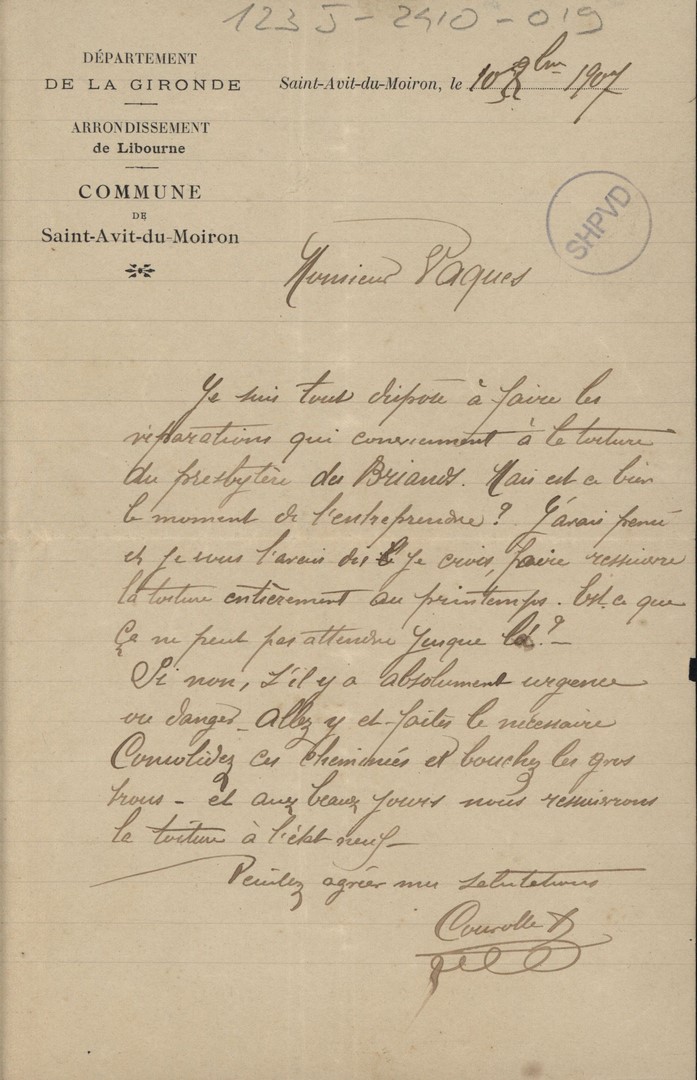 123 J - 2410 - 019
DÉPARTEMENT
DE LA GIRONDE
ARRONDISSEMENT
de Libourne
COMMUNE
DE
Saint-Avit-du-Moiron
Saint-Avit-du-Moiron, le 10 Xbre 1907
SHPVD
Monsieur Paques
Je suis tout disposé à faire les
réparations qui conviennent à la toiture
du presbytère des Briands. Mais est ce bien
le moment de l'entreprendre? J'avais pensé
et je vous l'avais dit je crois, faire ressuivre
la toiture entièrement au printemps. Est-ce que
ça ne peut pas attendre jusque là? -
Si non, s'il y a absolument urgence
ou danger - Allez y et faites le nécessaire
Consolidez ces cheminées et bouchez les gros
trous - et aux beaux jours nous ressuivrons
la toiture à l'état neuf -
Veuillez agréer mes salutations